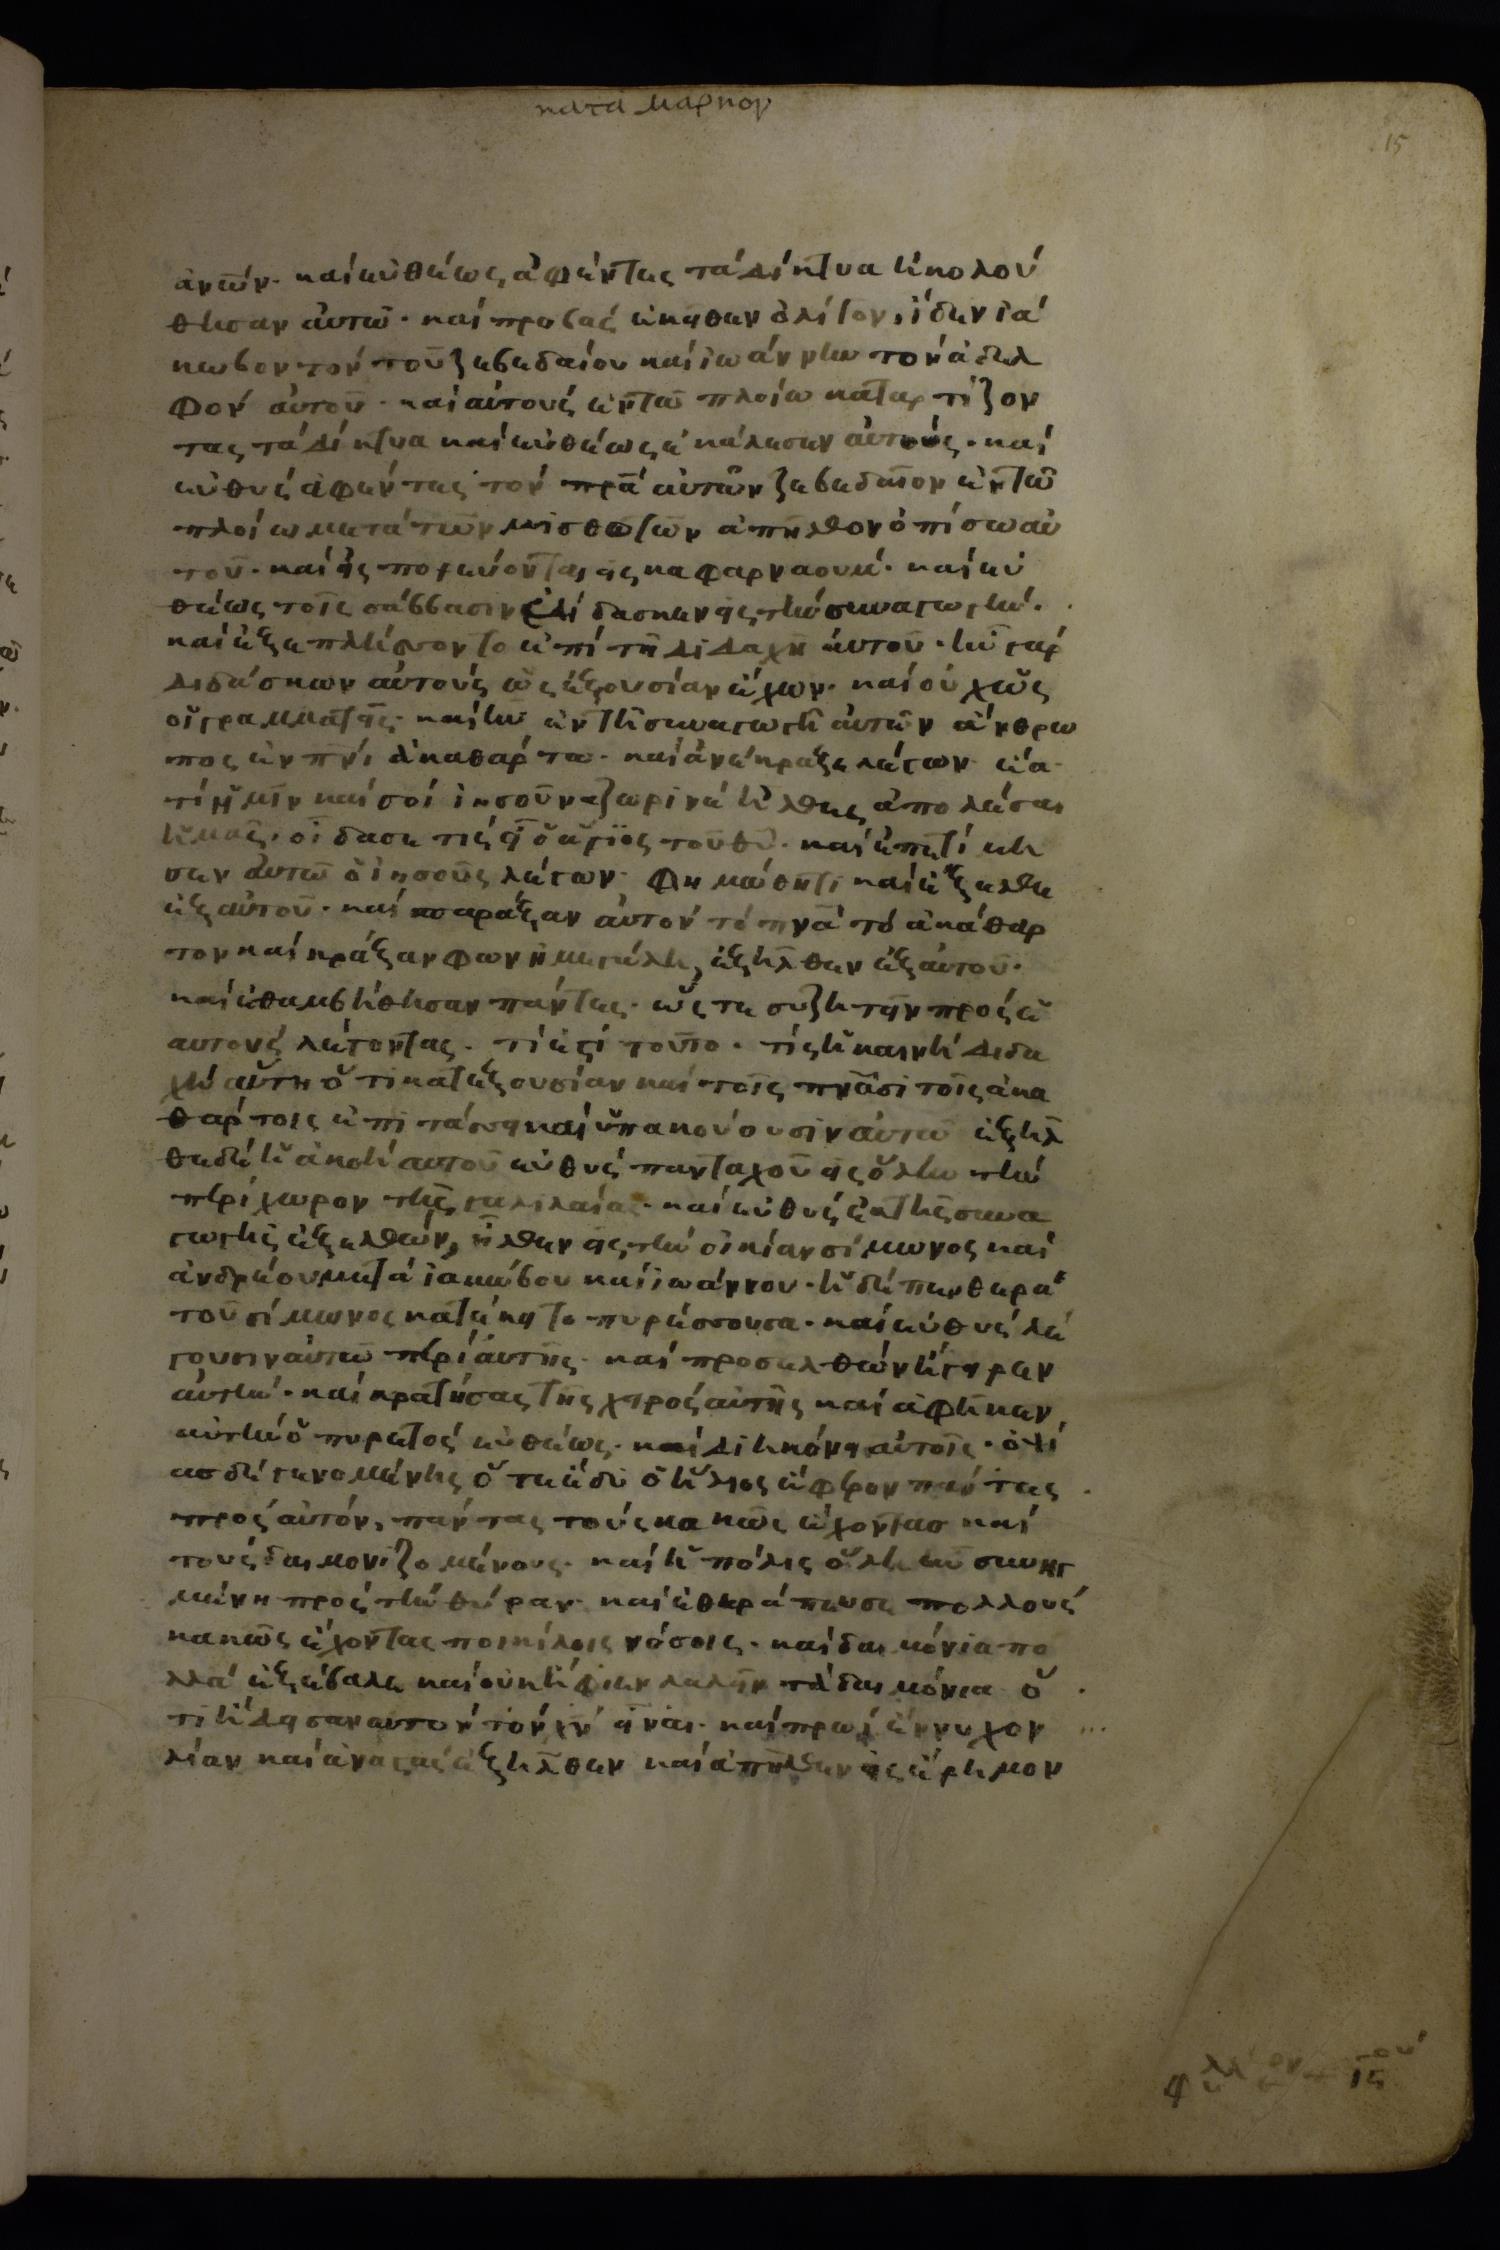 κατα μαρκον
15
ἀν̅ων· καὶ εὐθέως ἀφέντες τὰ δίκτυα ἠκολού
θησαν αὐτῶ· καὶ προβὰς ἐκεῖθεν ὀλίγον, ἴδεν ϊά
κωβον τὸν τοῦ ζεβεδαίου καὶ ϊωάννην τὸν ἀδελ
φὸν αὐτοῦ· καὶ αὐτοὺς ἐν τῶ πλοίω καταρτίζον
τας τὰ δίκτυα καὶ εὐθέως ἐκάλεσεν αὐτοὺς· καὶ
εὐθὺς ἀφέντες τὸν πρ̅α αὐτῶν ζεβεδαῖον ἐν τῶ
πλοίω μετὰ τῶν μισθωτῶν ἀπῆλθον ὀπίσω αὐ
τοῦ· καὶ εἰς πορεύονται εἰς καφαρναούμ· καὶ εὐ
θέως τοῖς σάββασιν ἐδίδασκεν εἰς τὴν συναγωγήν·
καὶ ἐξεπλήσσοντο ἐπὶ τῆ διδαχῆ αὐτοῦ· ἦν γὰρ
διδάσκων αὐτοὺς ὡς ἐξουσίαν ἔχων· καὶ οὐχ ὡς
οἱ γραμματεῖς· καὶ ἦν ἐν τῆ συναγωγῆ αὐτῶν ἄνθρω
πος ἐν πν̅ι ἀκαθάρτω· καὶ ἀνέκραξε λέγων· ἔα·
τί ἡμῖν καὶ σοὶ ἰησοῦ ναζωρινέ ἦλθες ἀπολέσαι
ἡμᾶς· οἶδα σε τίς εἶ ὁ ἅγιος τοῦ θ̅υ· καὶ ἐπετίμη
σεν αὐτῶ ὁ ἰησοῦς λέγων· φημώθητι καὶ ἔξελθε
ἐξ αὐτοῦ· καὶ σπαράξαν αὐτὸν τὸ πν̅α τὸ ἀκάθαρ
τον καὶ κράξαν φωνῆ μεγάλη, ἐξῆλθεν ἐξ αὐτοῦ·
καὶ ἐθαμβήθησαν πάντες· ὥς τε συζητεῖν πρὸς ἑ
αυτοὺς λέγοντας· τί ἐστὶ τοῦτο· τίς ἡ καινὴ διδα
χὴ αὕτη ὅτι κατ ἐξουσίαν καὶ τοῖς πν̅ασι τοῖς ἀκα
θάρτοις ἐπιτάσσει καὶ ὑπακούουσιν αὐτῶ ἐξῆλ
θε δὲ ἡ ἀκοὴ αὐτοῦ εὐθὺς πανταχοῦ εἰς ὅλην τὴν
περίχωρον τῆς γαλιλαίας· καὶ εὐθὺς ἐκ τῆς συνα
γωγῆς ἐξελθὼν, ἦλθεν εἰς τὴν οἰκίαν σίμωνος καὶ
ἀνδρέου μετὰ ἰακώβου καὶ ϊωάννου· ἡ δὲ πενθερὰ
τοῦ σίμωνος κατέκειτο πυρέσσουσα· καὶ εὐθὺς λέ
γουσιν αὐτῶ περὶ αὐτῆς· καὶ προσελθὼν ἤγειρεν
αὐτὴν· καὶ κρατήσας τῆς χειρὸς αὐτῆς καὶ ἀφῆκεν
αὐτὴν ὁ πυρετὸς εὐθέως· καὶ διηκόνει αὐτοῖς· ὀψί
ασ δὲ γενομένης ὅτε ἔδυ ὁ ἥλιος ἔφερον πάντες
πρὸς αὐτόν, πάντας τοὺς κακῶς ἔχοντασ καὶ
τοὺς δαιμονιζομένους· καὶ ἡ πόλις ὅλη ἦν συνηγ
μένη πρὸς τὴν θύραν· καὶ ἐθεράπευσε πολλοὺς
κακῶς ἔχοντας ποικίλοις νόσοις· καὶ δαιμόνια πο
λλὰ ἐξέβαλε καὶ οὐκ ἤφιεν λαλεῖν τὰ δαιμόνια ὅ
τι ἤδεισαν αὐτὸν τὸν χ̅ν εἶναι· καὶ πρωῒ ἔννυχον
λίαν καὶ ἀναστὰς ἐξῆλθεν καὶ ἀπῆλθεν εἰς ἔρημον